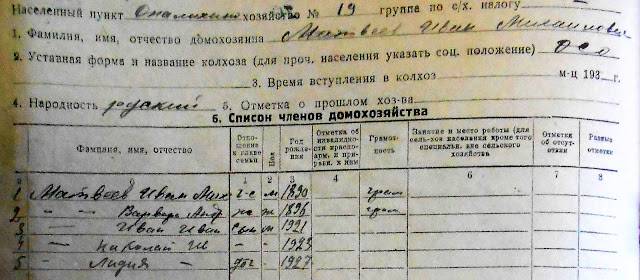 Населенный пункт Опалихино хозяйство № 19 группа по с/х. налогу
1. Фамилия, имя, отчество домохозяина Матвеев Иван Михайлович
2. Уставная форма и название колхоза (для проч. населения указать соц. положение) осо
3. Время вступления в колхоз м-ц 193 г.
4. Народность русский 5. Отметка о прошлом хоз-ва
6. Список членов домохозяйства
Фамилия, имя, отчество Отношение к главе семьи Пол Год рождения Отметка об инвалидности красноарм. и призыв. к ним Грамотность Занятие и место работы (для сель-хоз населения кроме того специальн. вне сельского хозяйства Отметки об отсутствии Разные отметки
1 2 3 4 6 7 8
1 Матвеев Иван Мих г-с м 1890 грам
2 — — Варвара Андр ж 1896 грам
3 — Иван Иван сын м 1921
4 — Николай Ив — — 1923
5 — Лидия — доч 1927